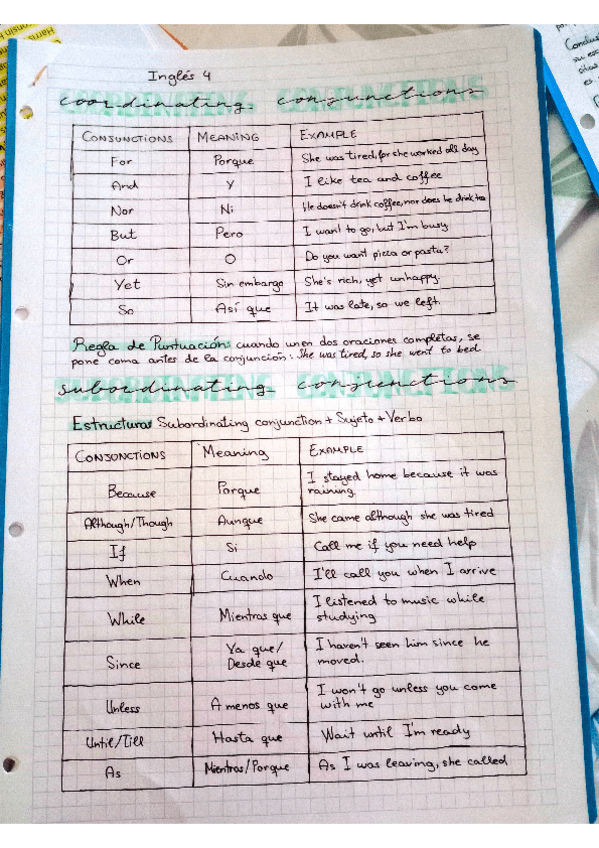 Inglés 4
coordinating conjunctions
CONJUNCTIONS MEANING EXAMPLE
For Porque She was tired, for she worked all day
And Y I like tea and coffee
Nor Ni He doesn't drink coffee, nor does he drink tea
But Pero I want to go, but I'm busy
Or O Do you want pizza or pasta?
Yet Sin embargo She's rich, yet unhappy
So Así que It was late, so we left
Regla de Puntuación: cuando unen dos oraciones completas, se
pone coma antes de la conjunción: She was tired, so she went to bed
subordinating conjunctions
Estructura: Subordinating conjunction + Sujeto + Verbo
CONJUNCTIONS Meaning EXAMPLE
Because Porque I stayed home because it was
raining.
Although/Though Aunque She came although she was tired
If Si Call me if you need help
When Cuando I'll call you when I arrive
While Mientras que I listened to music while
studying
Since Ya que/
Desde que I haven't seen him since he
moved.
Unless A menos que I won't go unless you come
with me
Until/Till Hasta que Wait until I'm ready
As Mientras/Porque As I was leaving, she called